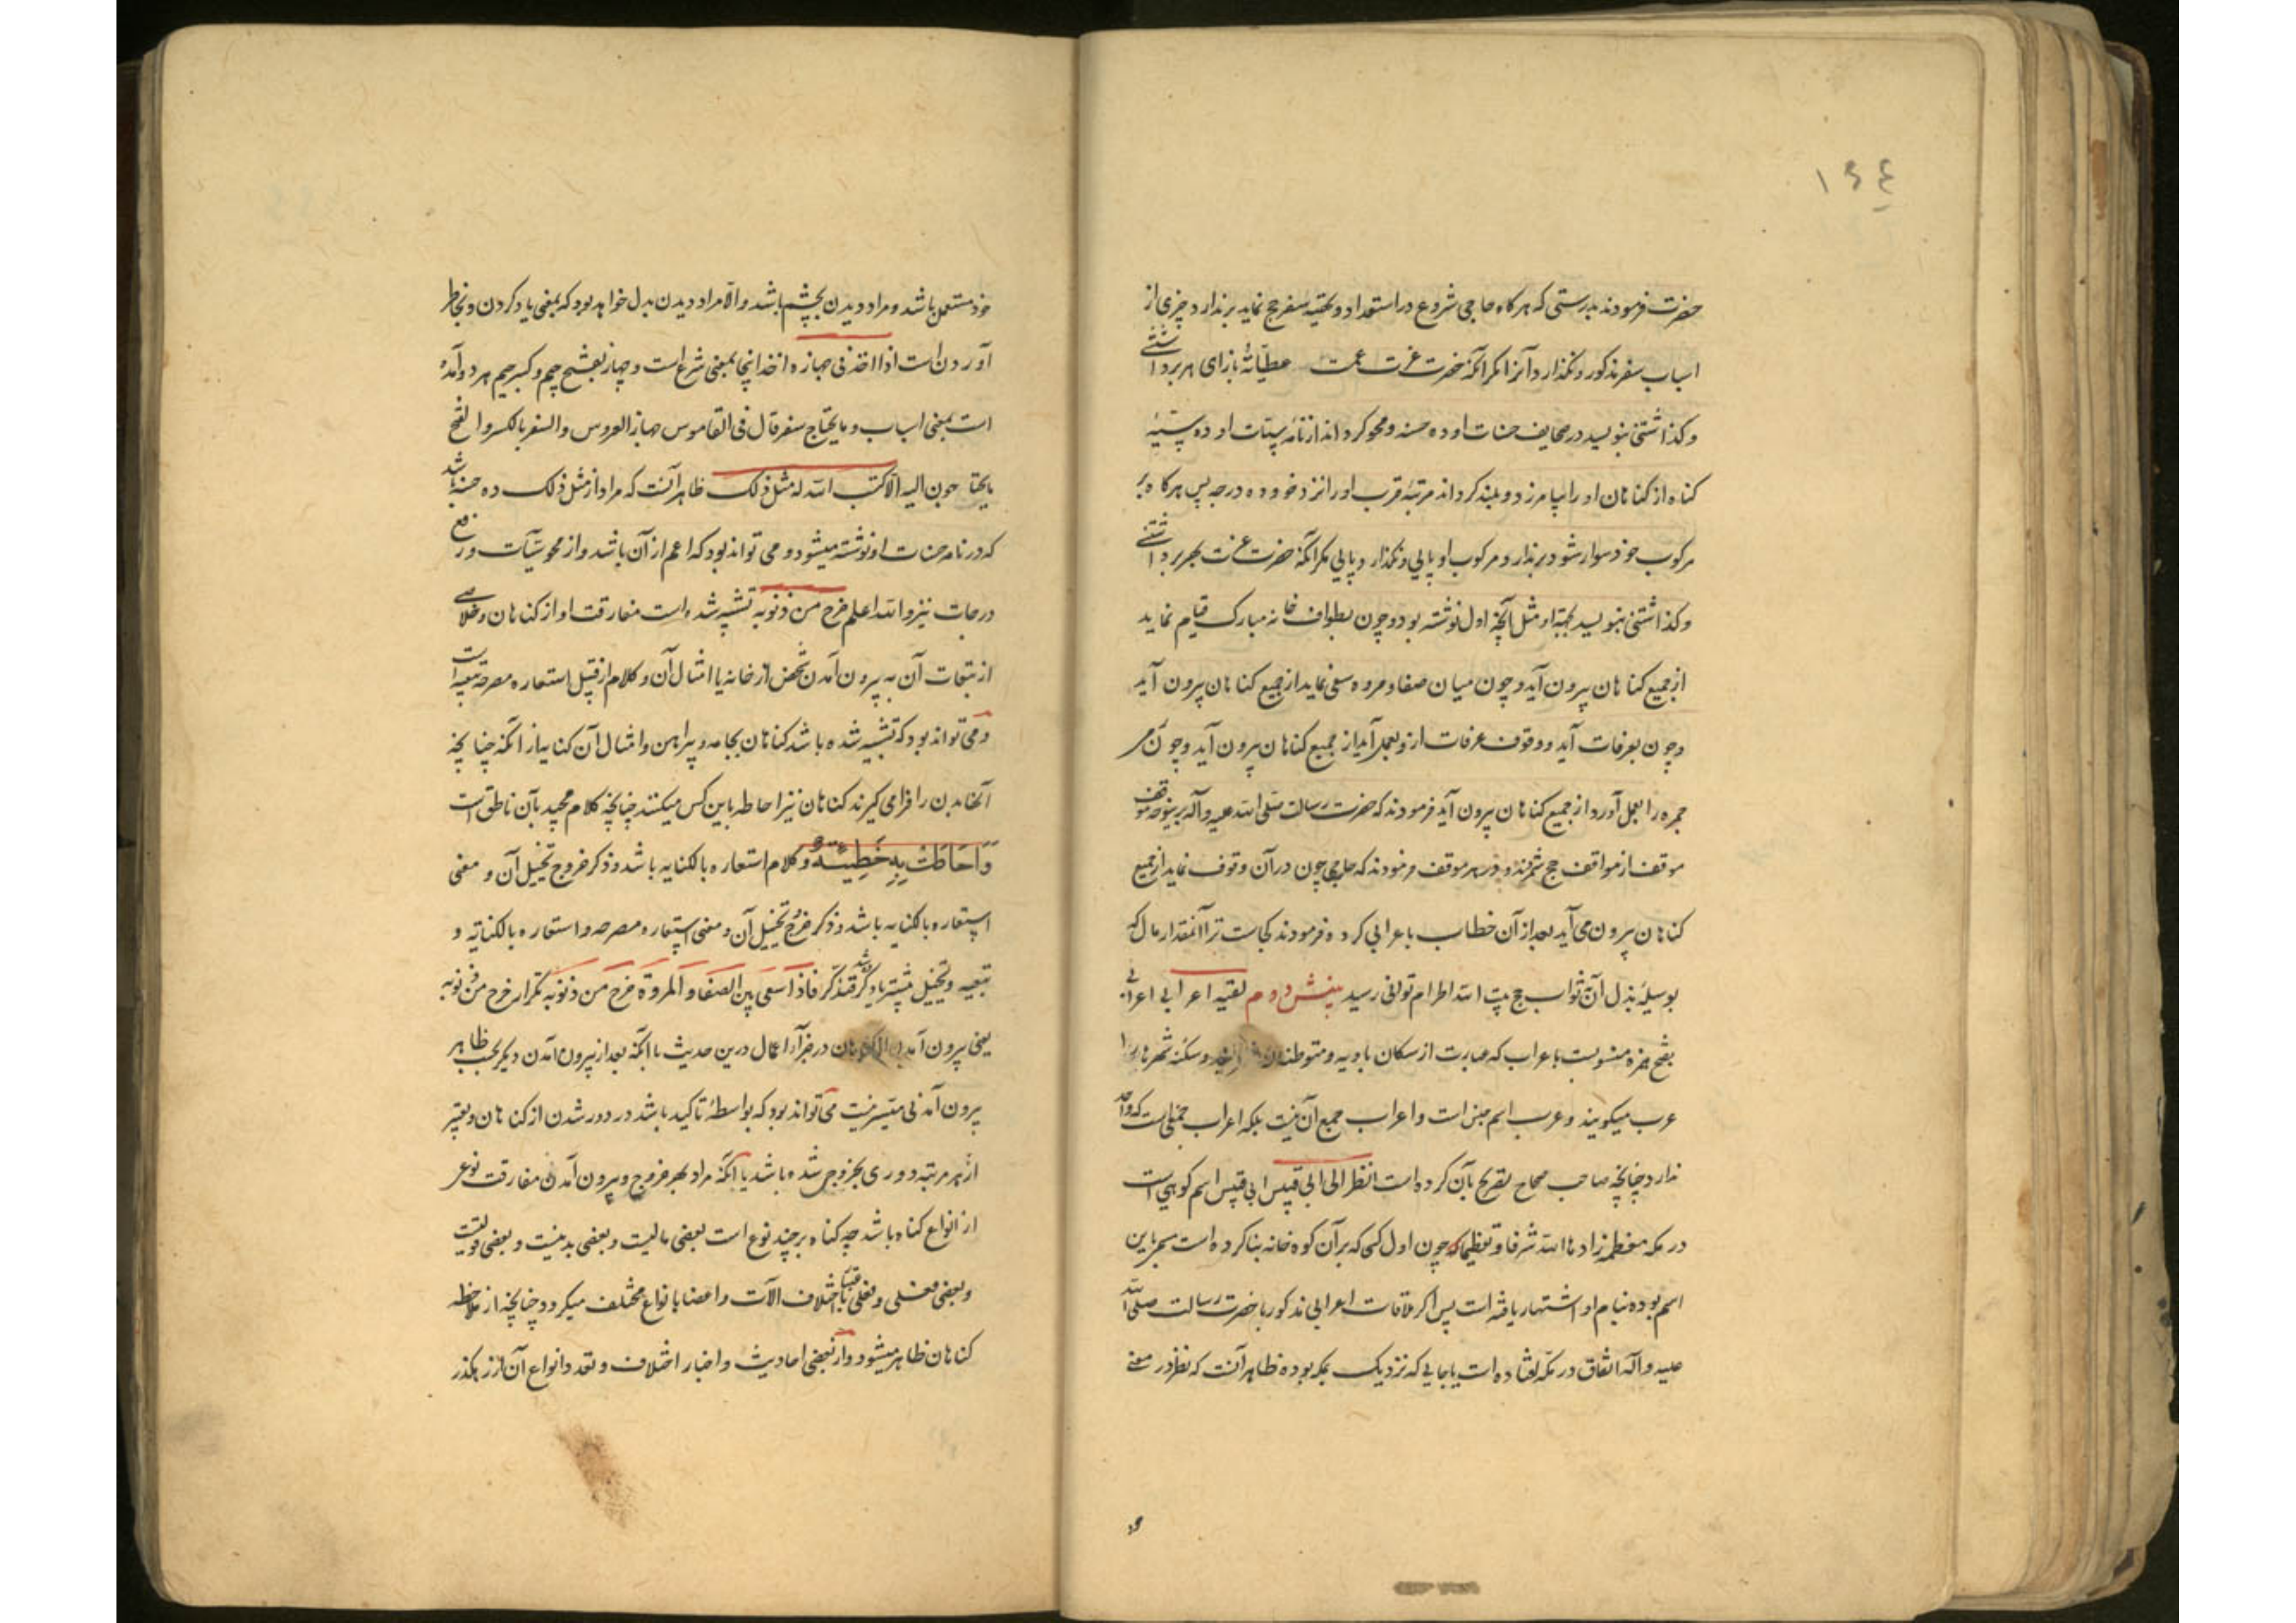 ١٤٤
حضرت فرمودند بدرستی که هرکاه حاجی شروع در استعداد و تهیه سفر حج نماید برندارد چیزی از
اسباب سفر مذکور و نکذارد آنرا مکر آنکه حضرت عزت عمت عطیّاته بازای هر برداشتنی
و کذاشتنی بنویسد در صحایف حسنات او ده حسنه و محو کرداند از نامه سیئات او ده سیئه
کناه از کناهان او را بیامرزد و بلند کرداند مرتبه قرب او را نزد خود ده درجه پس هرکاه بر
مرکوب خود سوار شود برندارد مرکوب او پایی و نکذارد پایی مکر آنکه حضرت عزت بهر برداشتنی
و کذاشتنی بنویسد بجهة او مثل آنچه اول نوشته بود و چون بطواف خانه مبارک قیام نماید
از جمیع کناهان بیرون آید و چون میان صفا و مروه سعی نماید از جمیع کناهان بیرون آید
و چون بعرفات آید و وقوف عرفات ازو بعمل آید از جمیع کناهان بیرون آید و چون
جمره را بعمل آورد از جمیع کناهان بیرون آید فرمودند که حضرت رسالت صلی الله علیه و آله برینوجه موقف
موقف از مواقف حج شمردند و در هر موقف فرمودند که حاجی چون در آن وقوف نماید از جمیع
کناهان بیرون می آید بعد از آن خطاب باعرابی کرده فرمودند کجاست ترا آنمقدار مال که
بوسیله بذل آن ثواب حج بیت الله الحرام توانی رسید بینش دوم لقیه اعرابی اعرابی
بفتح همزه منسوبست باعراب که عبارت از سکان بادیه و متوطنان و سکنه شهرها را
عرب میکویند و عرب اسم جنس است و اعراب جمع آن نیست بلکه اعراب جمعی است که واحد
ندارد چنانچه صاحب صحاح تصریح بآن کرده است انظر الی ابی قبیس ابی قبیس اسم کوهی است
در مکه معظمه زادها الله شرفا و تعظیما که چون اول کسی که بر آن کوه خانه بنا کرده است مسمی باین
اسم بوده بنام او اشتهار یافته است پس اکر ملاقات اعرابی مذکور با حضرت رسالت صلی الله
علیه و آله اتفاق در مکه افتاده است یا جایی که نزدیک بمکه بوده ظاهر آنست که نظر در معنی
خود مستعمل باشد و مراد دیدن بچشم باشد و الّا مراد دیدن بدل خواهد بود که بمعنی یاد کردن و بخاطر
آوردن است اذا اخذ فی جهازه اخذ اینجا بمعنی شرع است و جهاز بفتح جیم و کسر جیم هر دو آمده
است بمعنی اسباب و ما یحتاج سفر قال فی القاموس جهاز العروس و السفر بالکسر و الفتح
ما یحتاجون الیه الّا کتب الله له مثل ذلک ظاهر آنست که مراد از مثل ذلک ده حسنه باشد
که در نامه حسنات او نوشته میشود و می تواند بود که اعم از آن باشد و از محو سیّآت و رفع
درجات نیز و الله اعلم خرج من ذنوبه تشبیه شده است مفارقت او از کناهان و خلاصی
از تبعات آن به بیرون آمدن شخص از خانه یا امثال آن و کلام از قبیل استعاره مصرحه تبعیه است
و می تواند بود که تشبیه شده باشد کناهان بجامه و پیراهن و امثال آن کنایه از آنکه چنانچه
آنها بدن را فرا می کیرند کناهان نیز احاطه باین کس میکنند چنانچه کلام مجید بآن ناطق است
وَاَحَاطَتْ بِهِ خَطِیئَتُهُ و کلام استعاره بالکنایه باشد و ذکر خروج تخییل آن و معنی
استعاره بالکنایه باشد و ذکر خرج تخییل آن و معنی استعاره مصرحه و استعاره بالکنایه و
تبعیه و تخییل بیشتر یاد کرده شد فتذکّر فاذا سعی بین الصفا و المروة خرج من ذنوبه تکرار خرج من ذنوبه
یعنی بیرون آمدن از کناهان در جزآء اعمال درین حدیث با آنکه بعد از بیرون آمدن دیکر بحسب ظاهر
بیرون آمدنی متیسر نیست می تواند بود که بواسطه تاکید باشد در دور شدن از کناهان و تعبیر
از هر مرتبه دوری بخروج شده باشد یا آنکه مراد بهر خروج و بیرون آمدن مفارقت نوعی
از انواع کناه باشد چه کناه بر چند نوع است بعضی مالیست و بعضی بدنیست و بعضی قولیست
و بعضی فعلی و فعلی باختلاف الآت و اعضا بانواع مختلف میکردد چنانچه از ملاحظه
کناهان ظاهر میشود و از بعضی احادیث و اخبار اختلاف و تعدد انواع آن